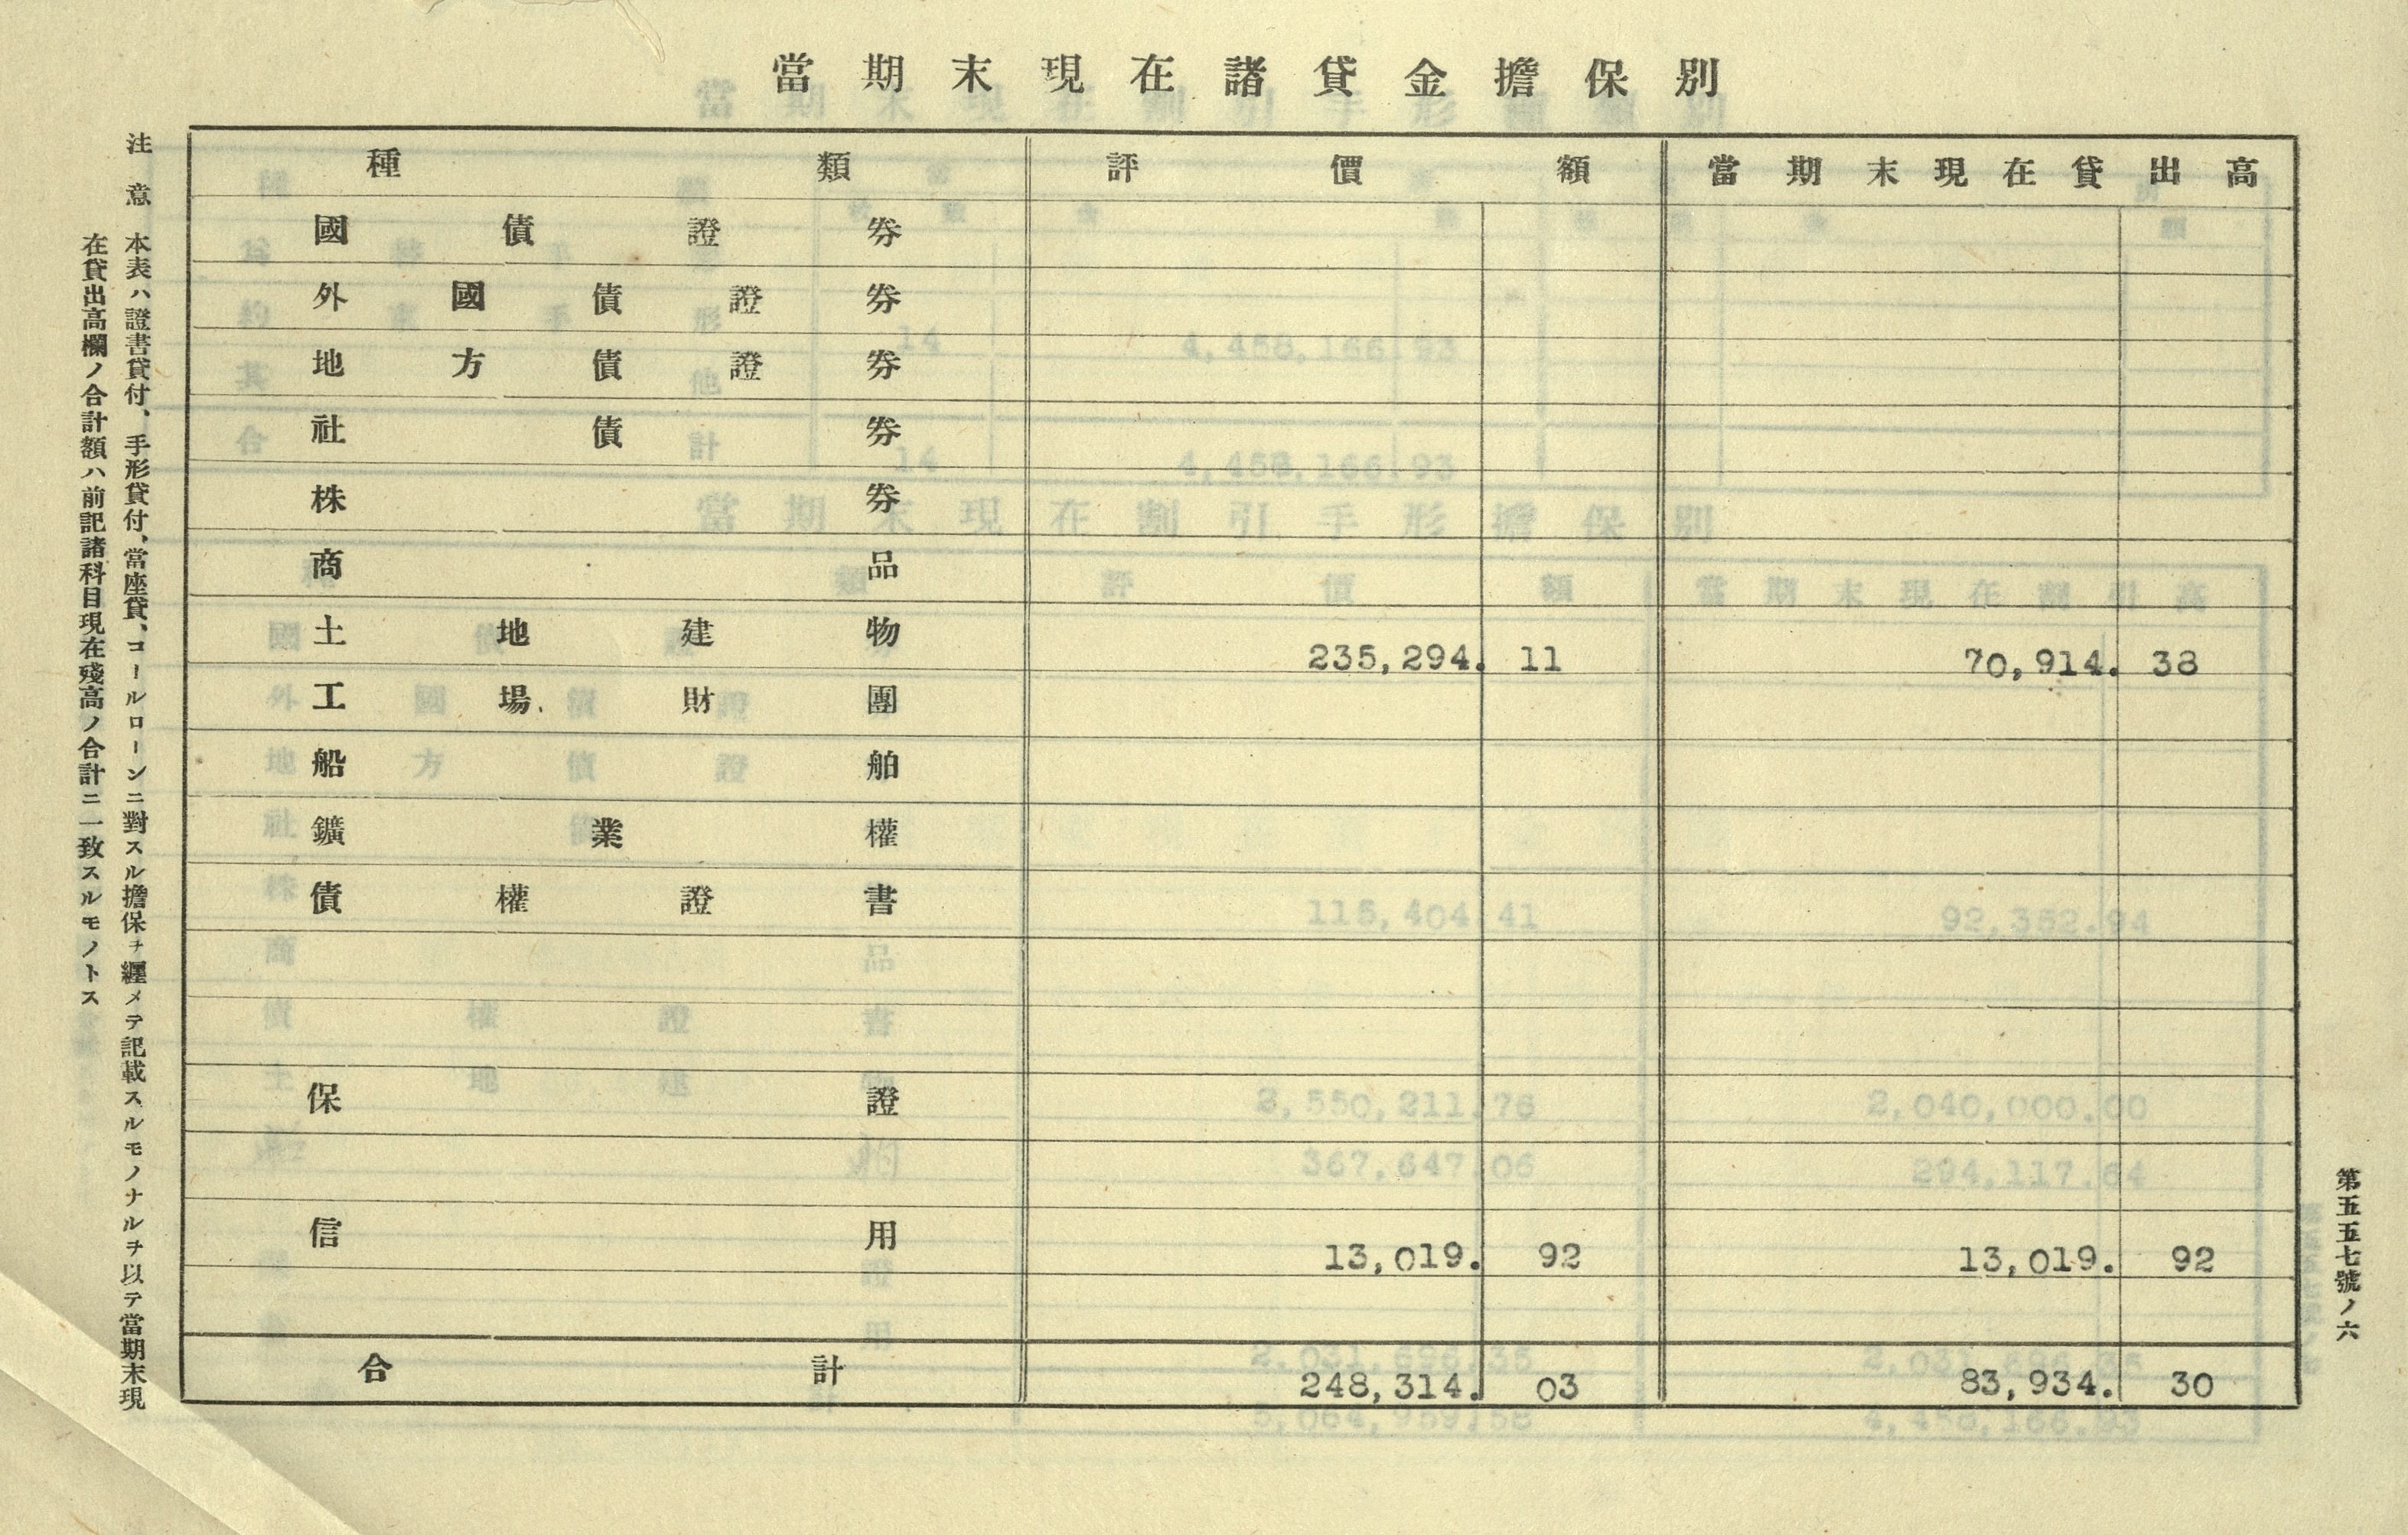 當期末現在諸貸金擔保別
種類 評價額 當期末現在貸出高
國債證券
外國債證券
地方債證券
社債券
株券
商品
土地建物 235,294.11 70,914.38
工場財團
船舶
鑛業權
債權證書
保證
信用 13,019.92 13,019.92
合計 248,314.03 83,934.30
第五五七號ノ六
注意 本表ハ證書貸付、手形貸付、當座貸、コールローンニ對スル擔保ヲ纒メテ記載スルモノナルヲ以テ當期末現
在貸出高欄ノ合計額ハ前記諸科目現在殘高ノ合計ニ一致スルモノトス